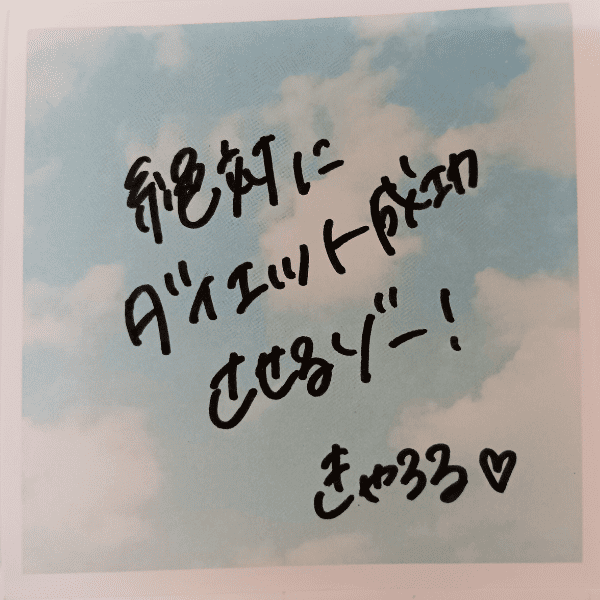 絶対に
ダイエット成功
させるゾー!
きゃろる♡